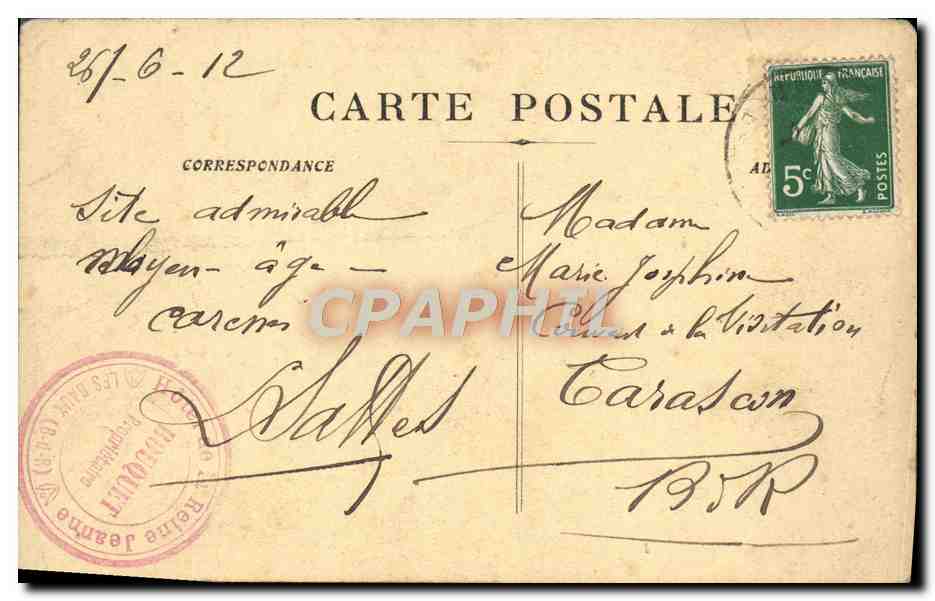 26/- 6 - 12
CARTE POSTALE
RÉPUBLIQUE FRANÇAISE
5c
POSTES
CORRESPONDANCE
AD
Site admirable
Moyen - âge -
Salles
Madame
Marie Joséphine
Couvent de la Visitation
Tarascon
B d R
CPAPHIL
Hôtel de la Reine Jeanne
LES BAUX (B-d-R)
BOUQUET
Propriétaire